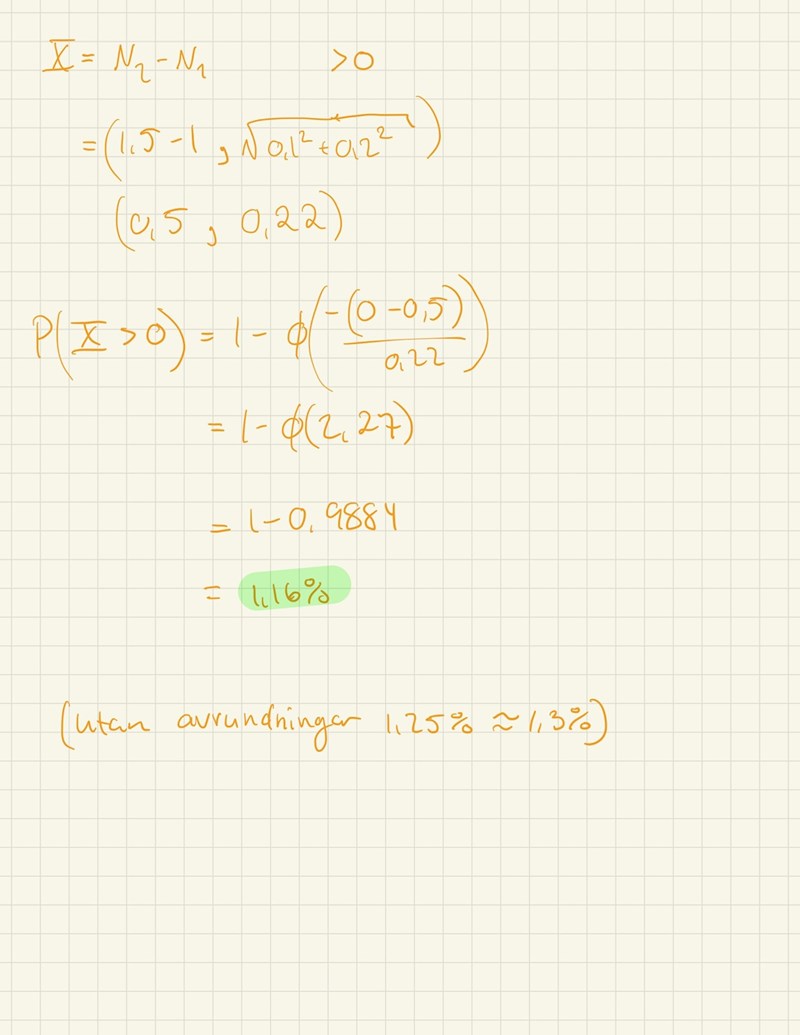 X = N₂ - N₁ >0
= (1,5 - 1 , √0,1² + 0,2²)
(0,5 , 0,22)
P(X > 0) = 1 - ϕ(-(0 - 0,5)/0,22)
= 1 - ϕ(2,27)
= 1 - 0,9884
= 1,16%
(utan avrundningar 1,25% ≈ 1,3%)